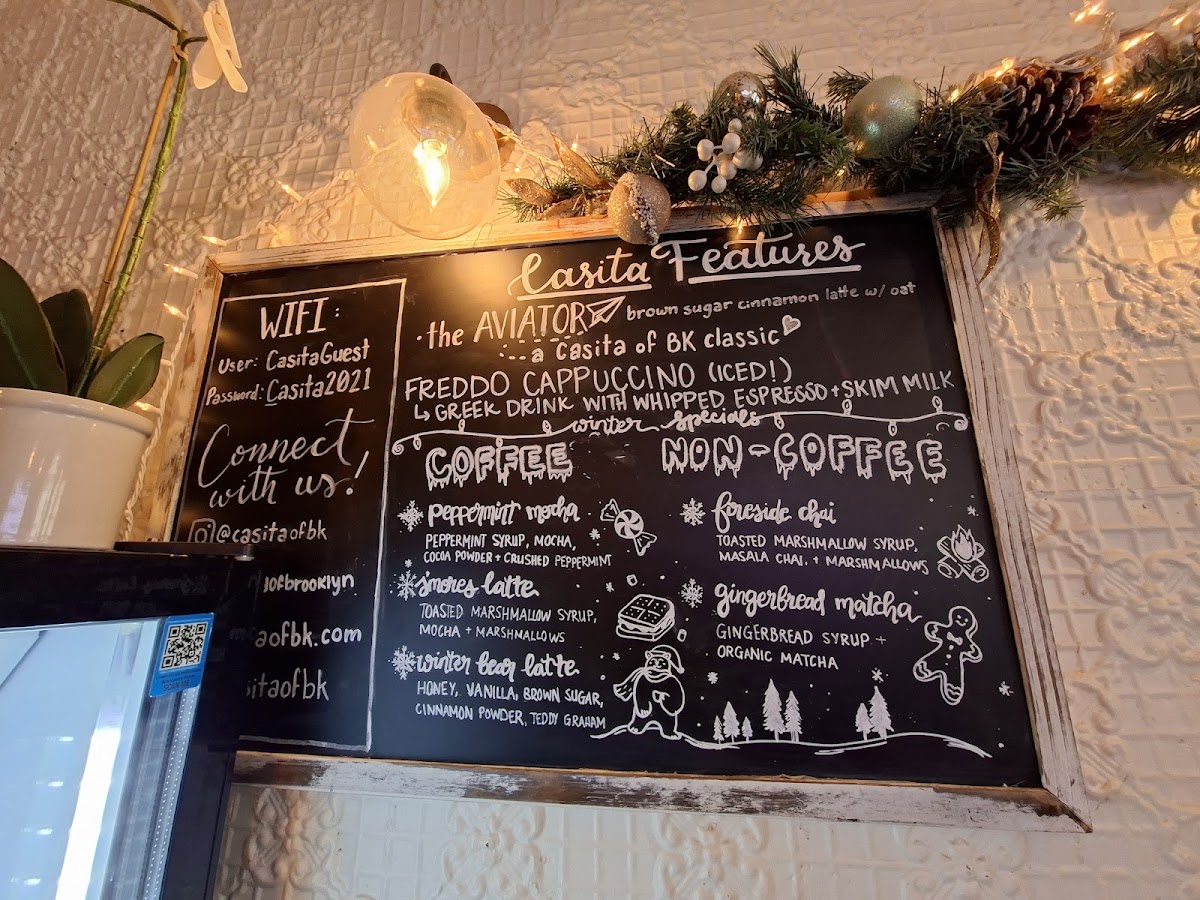 WIFI:
User: CasitaGuest
Password: Casita2021
Connect
with us!
@casitaofbk
ofbrooklyn
aofbk.com
sitaofbk
Casita Features
·the AVIATOR brown sugar cinnamon latte w/ oat
a Casita of BK classic
FREDDO CAPPUCCINO (ICED!)
↳ GREEK DRINK WITH WHIPPED ESPRESSO + SKIM MILK
winter specials
COFFEE
peppermint mocha
PEPPERMINT SYRUP, MOCHA,
COCOA POWDER + CRUSHED PEPPERMINT
s'mores latte
TOASTED MARSHMALLOW SYRUP,
MOCHA + MARSHMALLOWS
winter bear latte
HONEY, VANILLA, BROWN SUGAR,
CINNAMON POWDER, TEDDY GRAHAM
NON-COFFEE
fireside chai
TOASTED MARSHMALLOW SYRUP,
MASALA CHAI, + MARSHMALLOWS
gingerbread matcha
GINGERBREAD SYRUP +
ORGANIC MATCHA